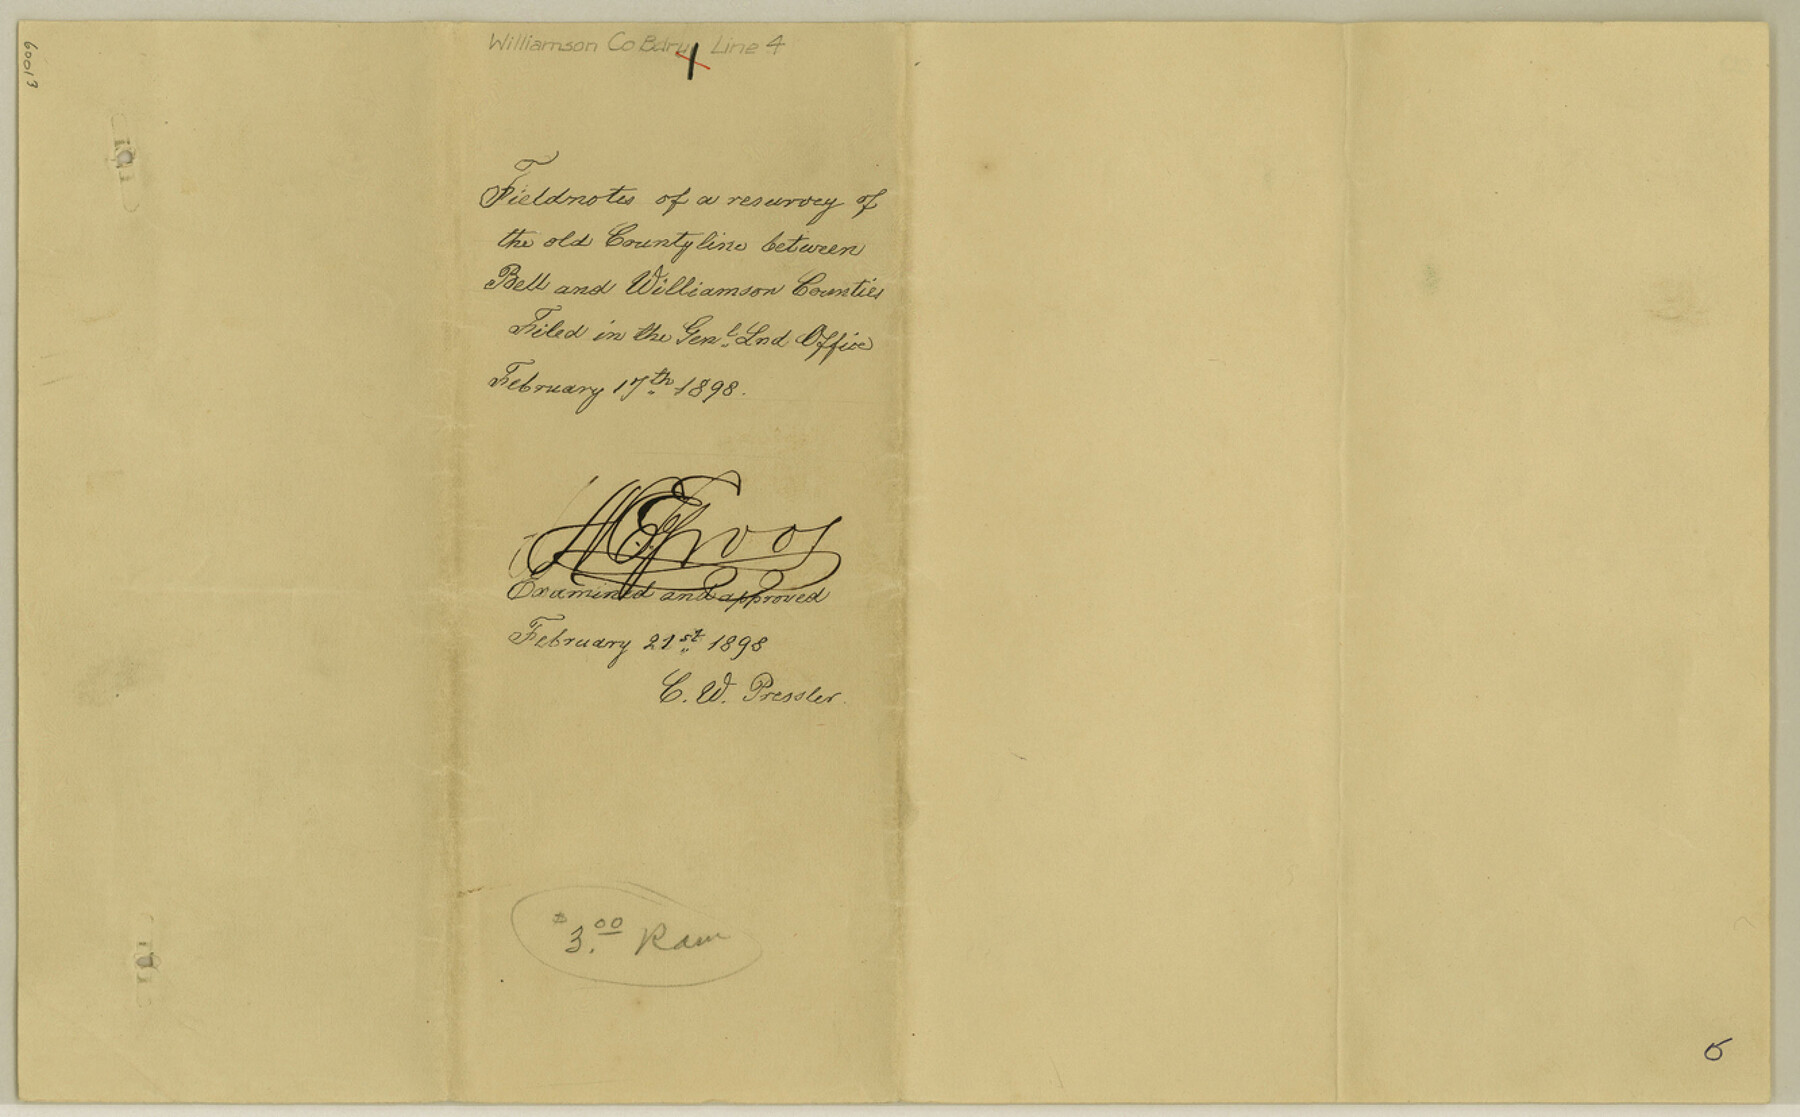 60013
Williamson Co Bdry Line 4
1
Fieldnotes of a resurvey of
the old Countyline between
Bell and Williamson Counties
Filed in the Genl. Lnd Office
February 17th 1898.
Examined and approved
February 21st 1898
C. W. Pressler.
$3.00 Ram
5